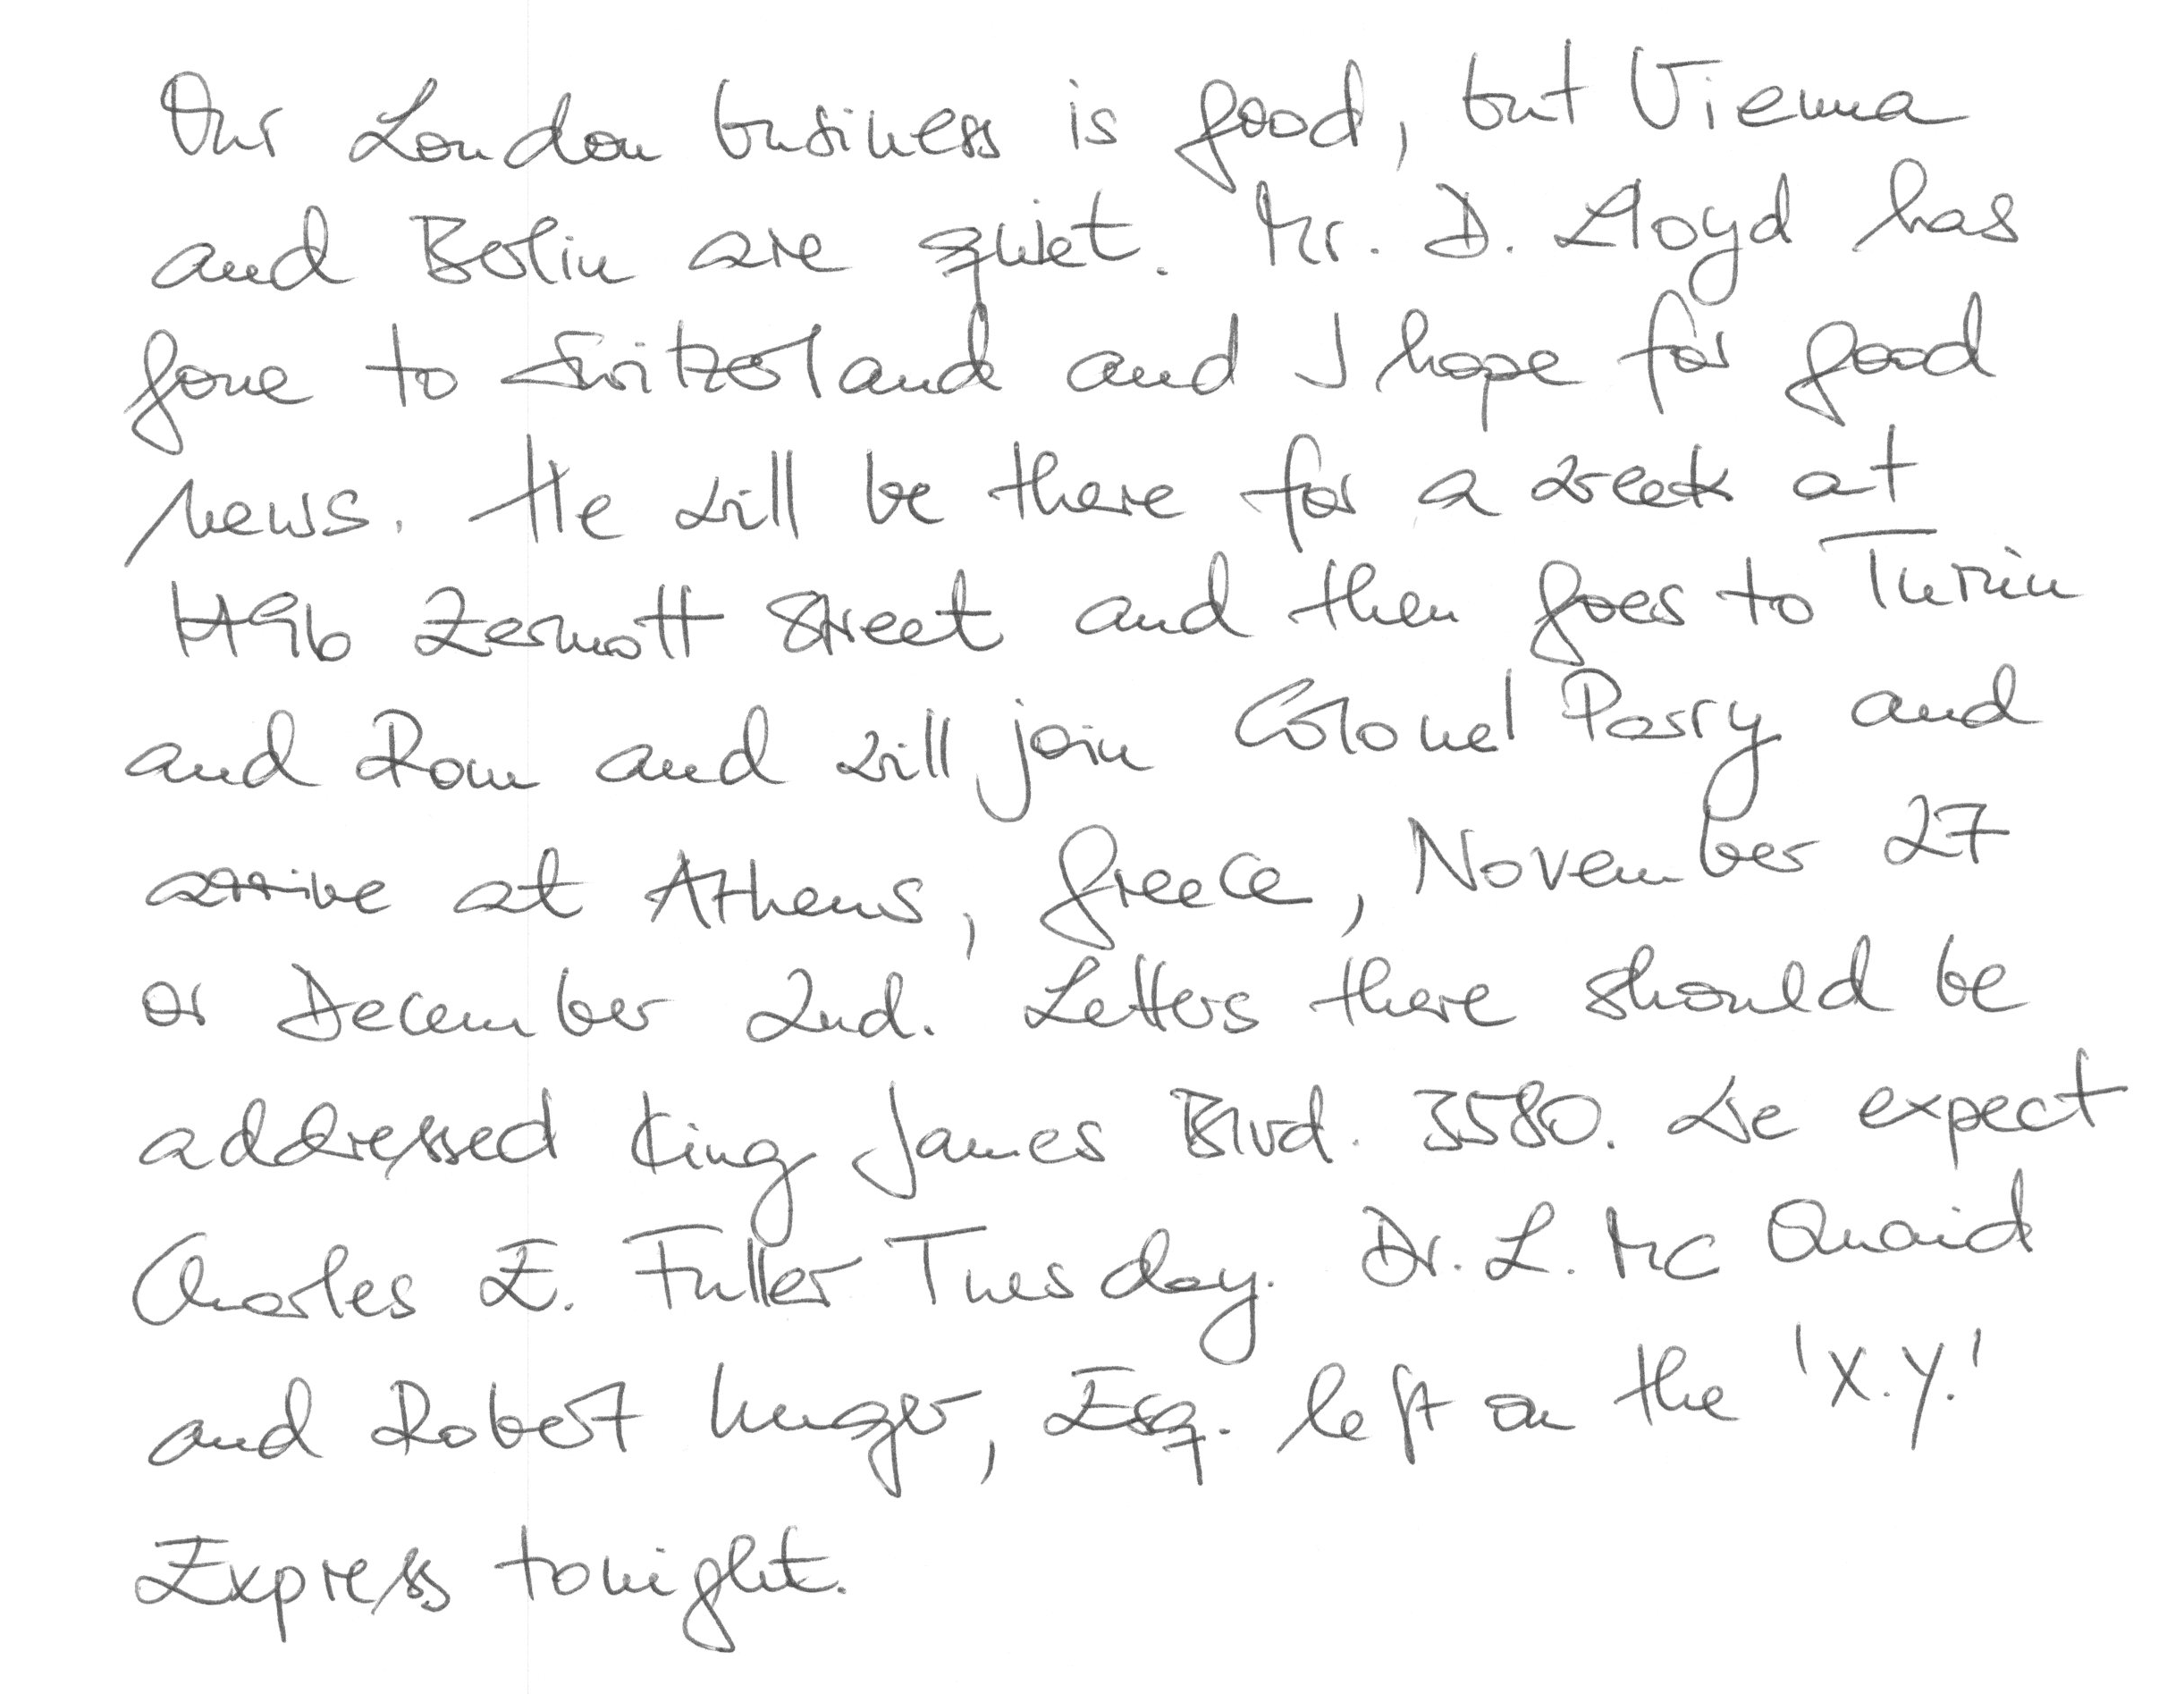 Our London business is good, but Vienna
and Berlin are quiet. Mr. D. Lloyd has
gone to Switzerland and I hope for good
news. He will be there for a week at
1496 Zermott Street and then goes to Turin
and Rom and will join Colonel Parry and
arrive at Athens, Greece, November 27
or December 2nd. Letters there should be
addressed King James Blvd. 3580. We expect
Charles E. Fuller Tuesday. Dr. L. Mc Quaid
and Robert Unger, Esq. left on the 'X.Y.'
Express tonight.